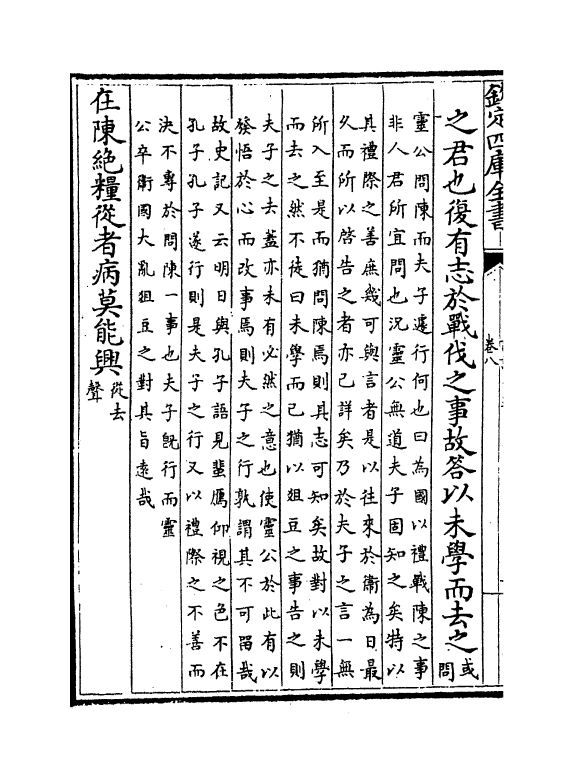 欽定四庫全書
卷八
之君也復有志於戰伐之事故答以未學而去之或問
靈公問陳而夫子遽行何也曰為國以禮戰陳之事
非人君所宜問也況靈公無道夫子固知之矣特以
其禮際之善庶幾可與言者是以往來於衞為日最
久而所以啓告之者亦已詳矣乃於夫子之言一無
所入至是而猶問陳焉則其志可知矣故對以未學
而去之然不徒曰未學而已猶以俎豆之事告之則
夫子之去蓋亦未有必然之意也使靈公於此有以
發悟於心而改事焉則夫子之行孰謂其不可留哉
故史記又云明日與孔子語見蜚鴈仰視之色不在
孔子孔子遂行則是夫子之行又以禮際之不善而
決不專於問陳一事也夫子既行而靈
公卒衛國大亂俎豆之對其旨遠哉
在陳絶糧從者病莫能興從去聲